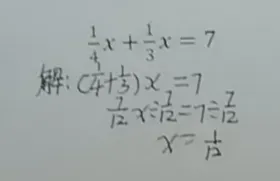 1/4 x + 1/3 x = 7
解: (1/4 + 1/3) x = 7
7/12 x ÷ 7/12 = 7 ÷ 7/12
x = 1/12